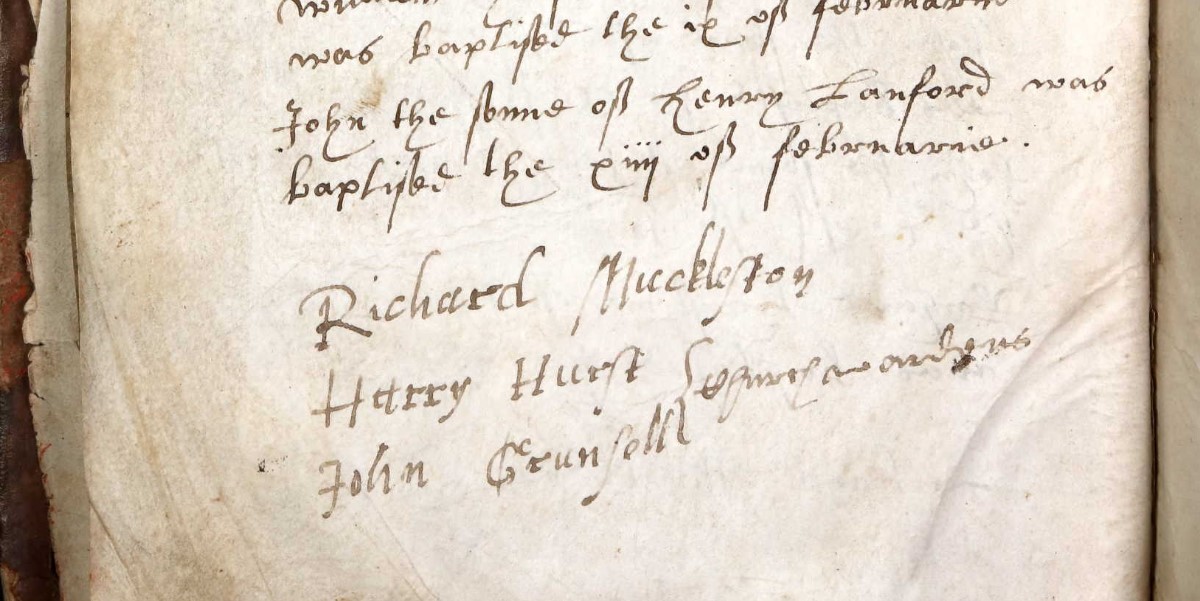 was baptised the ix of februarie
John the sonne of Henry Lanford was
baptised the xiiij of februarie.
Richard Muckleston
Harry Hurst } Churchwardens
John Grunsell